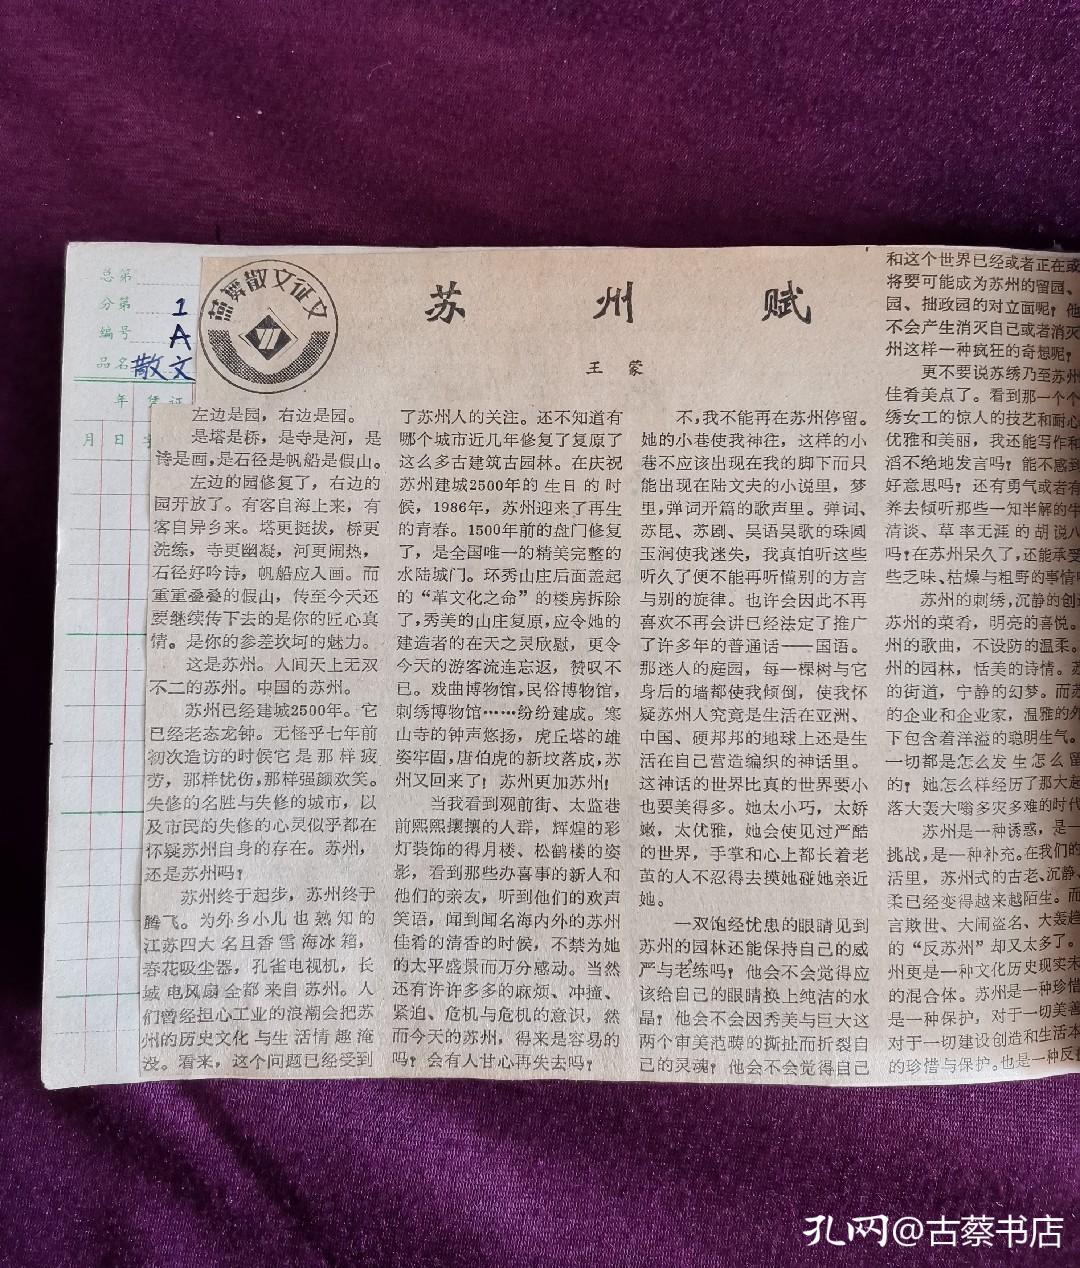 总第
分第 1
编号 A
品名 散文
年 凭证
月 日
燕舞散文征文
苏州赋
王蒙
左边是园，右边是园。
是塔是桥，是寺是河，是
诗是画，是石径是帆船是假山。
左边的园修复了，右边的
园开放了。有客自海上来，有
客自异乡来。塔更挺拔，桥更
洗练，寺更幽凝，河更闹热，
石径好吟诗，帆船应入画。而
重重叠叠的假山，传至今天还
要继续传下去的是你的匠心真
情。是你的参差坎坷的魅力。
这是苏州。人间天上无双
不二的苏州。中国的苏州。
苏州已经建城2500年。它
已经老态龙钟。无怪乎七年前
初次造访的时候它是那样疲
劳，那样忧伤，那样强颜欢笑。
失修的名胜与失修的城市，以
及市民的失修的心灵似乎都在
怀疑苏州自身的存在。苏州，
还是苏州吗？
苏州终于起步，苏州终于
腾飞。为外乡小儿也熟知的
江苏四大名旦香雪海冰箱，
春花吸尘器，孔雀电视机，长
城电风扇全都来自苏州。人
们曾经担心工业的浪潮会把苏
州的历史文化与生活情趣淹
没。看来，这个问题已经受到
了苏州人的关注。还不知道有
哪个城市近几年修复了复原了
这么多古建筑古园林。在庆祝
苏州建城2500年的生日的时
候，1986年，苏州迎来了再生
的青春。1500年前的盘门修复
了，是全国唯一的精美完整的
水陆城门。环秀山庄后面盖起
的“革文化之命”的楼房拆除
了，秀美的山庄复原，应令她的
建造者的在天之灵欣慰，更令
今天的游客流连忘返，赞叹不
已。戏曲博物馆，民俗博物馆，
刺绣博物馆……纷纷建成。寒
山寺的钟声悠扬，虎丘塔的雄
姿牢固，唐伯虎的新坟落成，苏
州又回来了！苏州更加苏州！
当我看到观前街、太监巷
前熙熙攘攘的人群，辉煌的彩
灯装饰的得月楼、松鹤楼的姿
影，看到那些办喜事的新人和
他们的亲友，听到他们的欢声
笑语，闻到闻名海内外的苏州
佳肴的清香的时候，不禁为她
的太平盛景而万分感动。当然
还有许许多多的麻烦、冲撞、
紧迫、危机与危机的意识，然
而今天的苏州，得来是容易的
吗？会有人甘心再失去吗？
不，我不能再在苏州停留。
她的小巷使我神往，这样的小
巷不应该出现在我的脚下而只
能出现在陆文夫的小说里，梦
里，弹词开篇的歌声里。弹词、
苏昆、苏剧、吴语吴歌的珠圆
玉润使我迷失，我真怕听这些
听久了便不能再听懂别的方言
与别的旋律。也许会因此不再
喜欢不再会讲已经法定了推广
了许多年的普通话——国语。
那迷人的庭园，每一棵树与它
身后的墙都使我倾倒，使我怀
疑苏州人究竟是生活在亚洲、
中国、硬邦邦的地球上还是生
活在自己营造编织的神话里。
这神话的世界比真的世界要小
也要美得多。她太小巧，太娇
嫩，太优雅，她会使见过严酷
的世界，手掌和心上都长着老
茧的人不忍得去摸她碰她亲近
她。
一双饱经忧患的眼睛见到
苏州的园林还能保持自己的威
严与老练吗？他会不会觉得应
该给自己的眼睛换上纯洁的水
晶？他会不会因秀美与巨大这
两个审美范畴的撕扯而折裂自
己的灵魂？他会不会觉得自己
和这个世界已经或者正在或
将要可能成为苏州的留园、
园、拙政园的对立面呢？他
不会产生消灭自己或者消灭
州这样一种疯狂的奇想呢？
更不要说苏绣乃至苏州
佳肴美点了。看到那一个个
绣女工的惊人的技艺和耐心
优雅和美丽，我还能写作和
滔不绝地发言吗？能不感到
好意思吗？还有勇气或者有
养去倾听那些一知半解的牛
清谈、草率无涯的胡说八
吗！在苏州呆久了，还能承受
些乏味、枯燥与粗野的事情吗
苏州的刺绣，沉静的创造
苏州的菜肴，明亮的喜悦。
州的歌曲，不设防的温柔。
州的园林，恬美的诗情。苏
的街道，宁静的幻梦。而苏
的企业和企业家，温雅的外
下包含着洋溢的聪明生气。
一切都是怎么发生怎么留
的？她怎么样经历了那大起
落大轰大嗡多灾多难的时代
苏州是一种诱惑，是一
挑战，是一种补充。在我们的
活里，苏州式的古老、沉静、
柔已经变得越来越陌生。而
言欺世、大闹盗名、大轰趋
的“反苏州”却又太多了。
州更是一种文化历史现实未
的混合体。苏州是一种珍惜
是一种保护，对于一切美善
对于一切建设创造和生活本
的珍惜与保护。也是一种反抗
孔网@古蔡书店